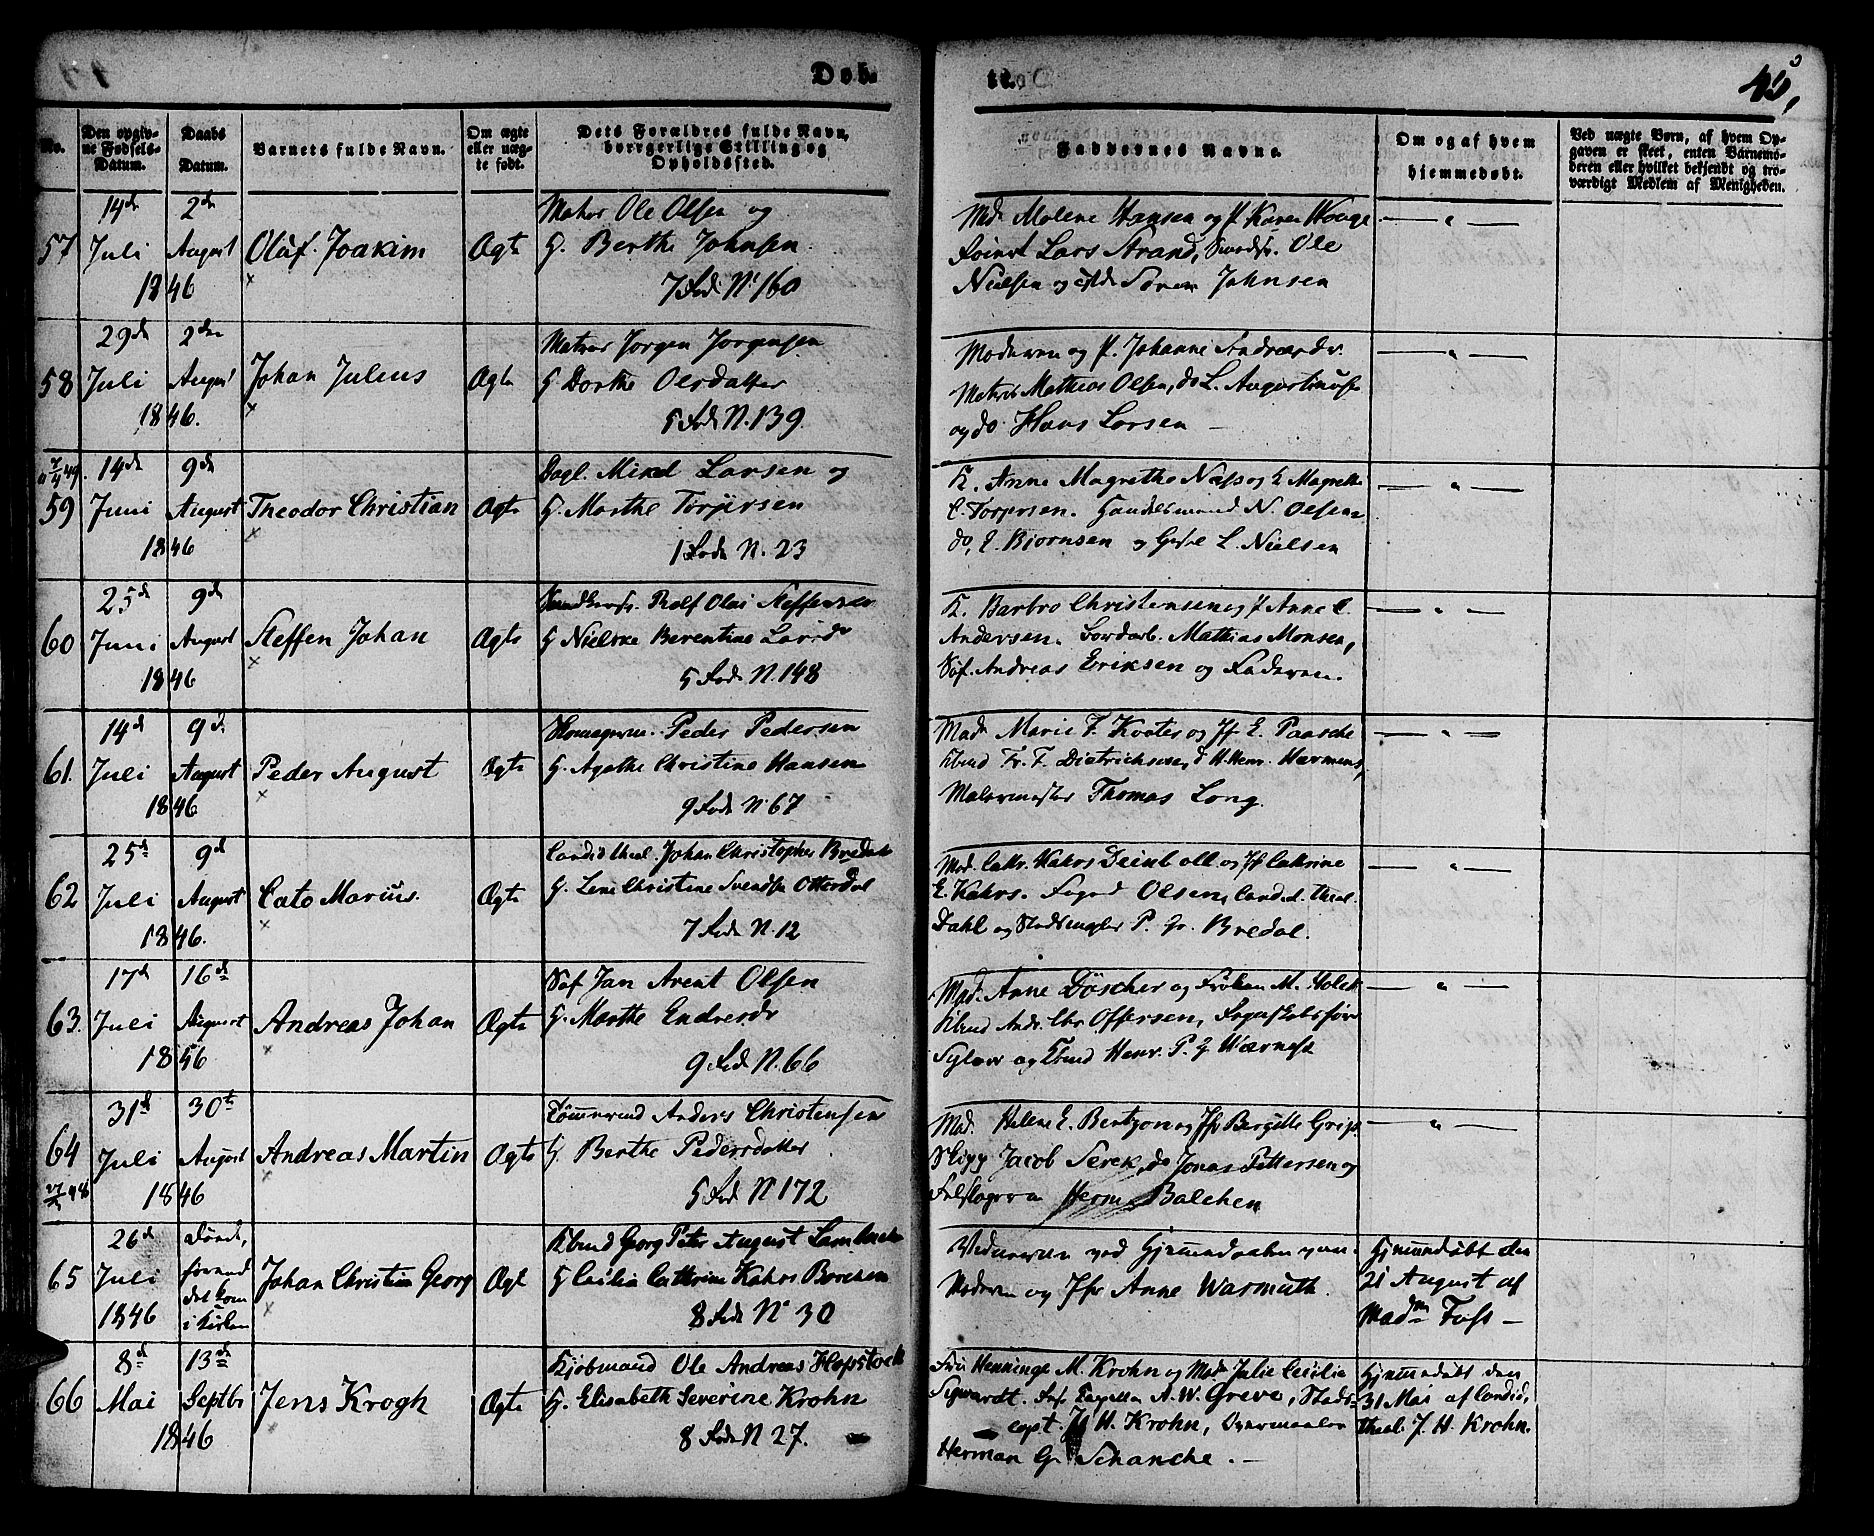 Døb.
45,
No.
Den opgiv-
ne Fødsels-
Datum.
Daabs
Datum.
Barnets fulde Navn.
Om ægte
eller uæg-
te født.
Dets Forældres fulde Navn,
borgerlige Stilling og
Opholdssted.
Faddernes Navne.
Om og af hvem
hjemmedøbt.
Ved uægte Børn, af hvem Op-
gaven er skeet, enten Barnemo-
deren eller hvilket bekjendt og tro-
værdigt Medlem af Menigheden.
57
14de Juli 1846
2de August
Olaf Joakim
Ægte
Matros Ole Olsen og
H. Berthe Johnsen
7 Rode N. 160
Mad. Malene Hansen og P. Karen Houge
Lars Strand, Ole
Nielsen og Søren Johnsen
58
29de Juli 1846.
2den August
Johan Julius
Ægte
Matros Jørgen Jørgensen
H Dorthe Olesdatter
5 Rode N. 139
Moderen og P. Johanne Andreasdr.
Matros Mathias Olsen, do L. Augustinusen
og do Hans Larsen
59
14de Juni 1846
9de August
Theodor Christian
Ægte
Dagl. Mikel Larsen og
H. Marthe Torjersen
1 Rode N. 23
K. Anne Magrethe Næss og K Magrethe
C. Torjersen. Handelsmand N. Olsen
do, E. Bjørnsen og L. Nielsen
60
25de Juni 1846
9de August
Steffen Johan
Ægte
Rolf Olai Steffensen
H Nielske Berentine Larsdr
5 Rode N. 148
K. Barbro Christensen og P Anne C.
Andersen. Mathias Monsen,
Andreas Eriksen og Faderen.
61.
14de Juli 1846
9de August
Peder August
Ægte
Peder Pedersen
H. Agathe Christine Hansen
9 Rode N. 67
Mad. Marie F. Kooter og Jf E. Paasche
Kbmd Fr. F. Dietrichsen, H. Henr. Harmens,
Malermester Thomas Long.
62
25de Juli 1846.
9de August
Cato Marius.
Ægte
Candid theol. Johan Christopher Bredal
H. Lene Christine Svendsen Otterdal
7 Rode N. 12
Mad. Cathr. Kahrs Deinboll og Jf Cathrine
E. Kahrs. Olsen, Candid. theol.
Dahl og P. Bredal.
63.
17de Juli 1846
16de August
Andreas Johan
Ægte
Jan Arent Olsen
H. Marthe Endresdr
9 Rode N. 66
Mad. Anne Döscher og Frøken M. Holck
Kbmd Andr. Chr Offersen,
og Kbmd Henr. P.
64
31de Juli 1846
30te August
Andreas Martin
Ægte
Tømmermd Anders Christensen
H. Berthe Pedersdatter
5 Rode N 172
Mad. Helene E. Bentzon og Jfr Bergitte Grip.
Skipp Jacob Serck, do Jonas Pettersen og
Herm Balchen
65
26de Juli 1846
Døde,
førend
det kom
i Kirken
Johan Christian Georg
Ægte
Kbmd Georg Peter August
H Cecilia Cathrine Kahrs Borchsen
8 Rode No 30
Vidnerne ved Hjemmedaaben var
Moderen og Jfr Anne Warmuth.
Hjemmedøbt den
21 August af
Madm Foss –
66
8de Mai 1846
13de Septbr
Jens Krogh
Ægte
Kjøbmand Ole Andreas Hopstock
H. Elisabeth Severine Krohn
8 Rode N 27.
Fru Henninge M. Krohn og Mad Julie Cecilie
Sigwardt. A. W. Greve, Stads-
capt. H. Krohn, Overmaaler
Herman G. Schanche.
Hjemmedøbt den
31 Mai af Candid,
theol. J. H. Krohn.